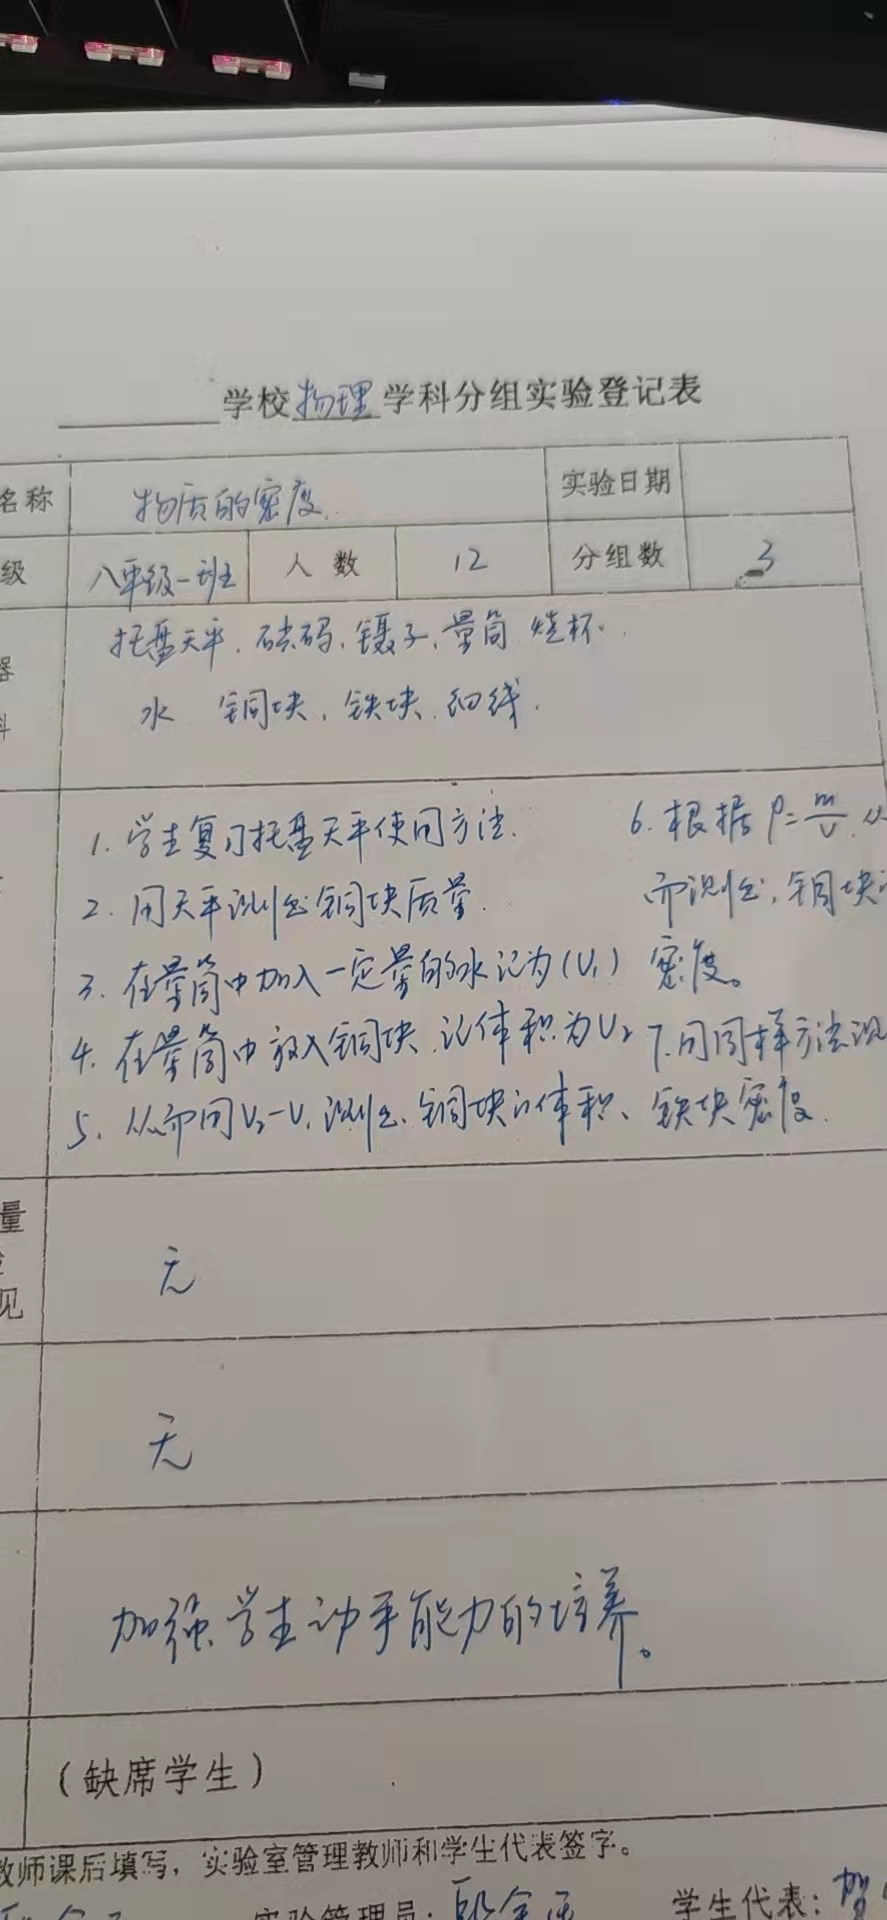 学校物理学科分组实验登记表
名称 物质的密度. 实验日期
级 八年级一班 人数 12 分组数 3
器 托盘天平.砝码.镊子.量筒 烧杯.
料 水 铜块.铁块.细线.
1.学生复习托盘天平使用方法.
2.用天平测出铜块质量.
3.在量筒中加入一定量的水记为(V₁)
4.在量筒中放入铜块.记体积为V₂
5.从而用V₂-V₁测出铜块的体积、
6.根据ρ=m/V.从
而测出.铜块的
密度。
7.用同样方法测
铁块密度.
量
见
无
无
加强学生动手能力的培养。
(缺席学生)
教师课后填写,实验室管理教师和学生代表签字。
实验管理员: 学生代表:贺